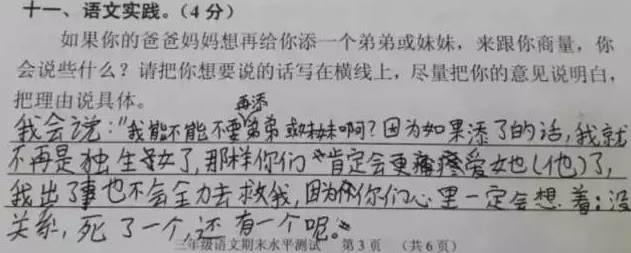 十一、语文实践。(4分)
如果你的爸爸妈妈想再给你添一个弟弟或妹妹,来跟你商量,你
会说些什么?请把你想要说的话写在横线上,尽量把你的意见说明白,
把理由说具体。
再添
我会说:“我能不能不要弟弟或妹妹啊?因为如果添了的话,我就
不再是独生子女了,那样你们肯定会更疼爱她(他)了,
我出了事也不会全力去救我,因为你们心里一定会想着:没
关系,死了一个,还有一个呢。”
三年级语文期末水平测试 第3页 (共6页)